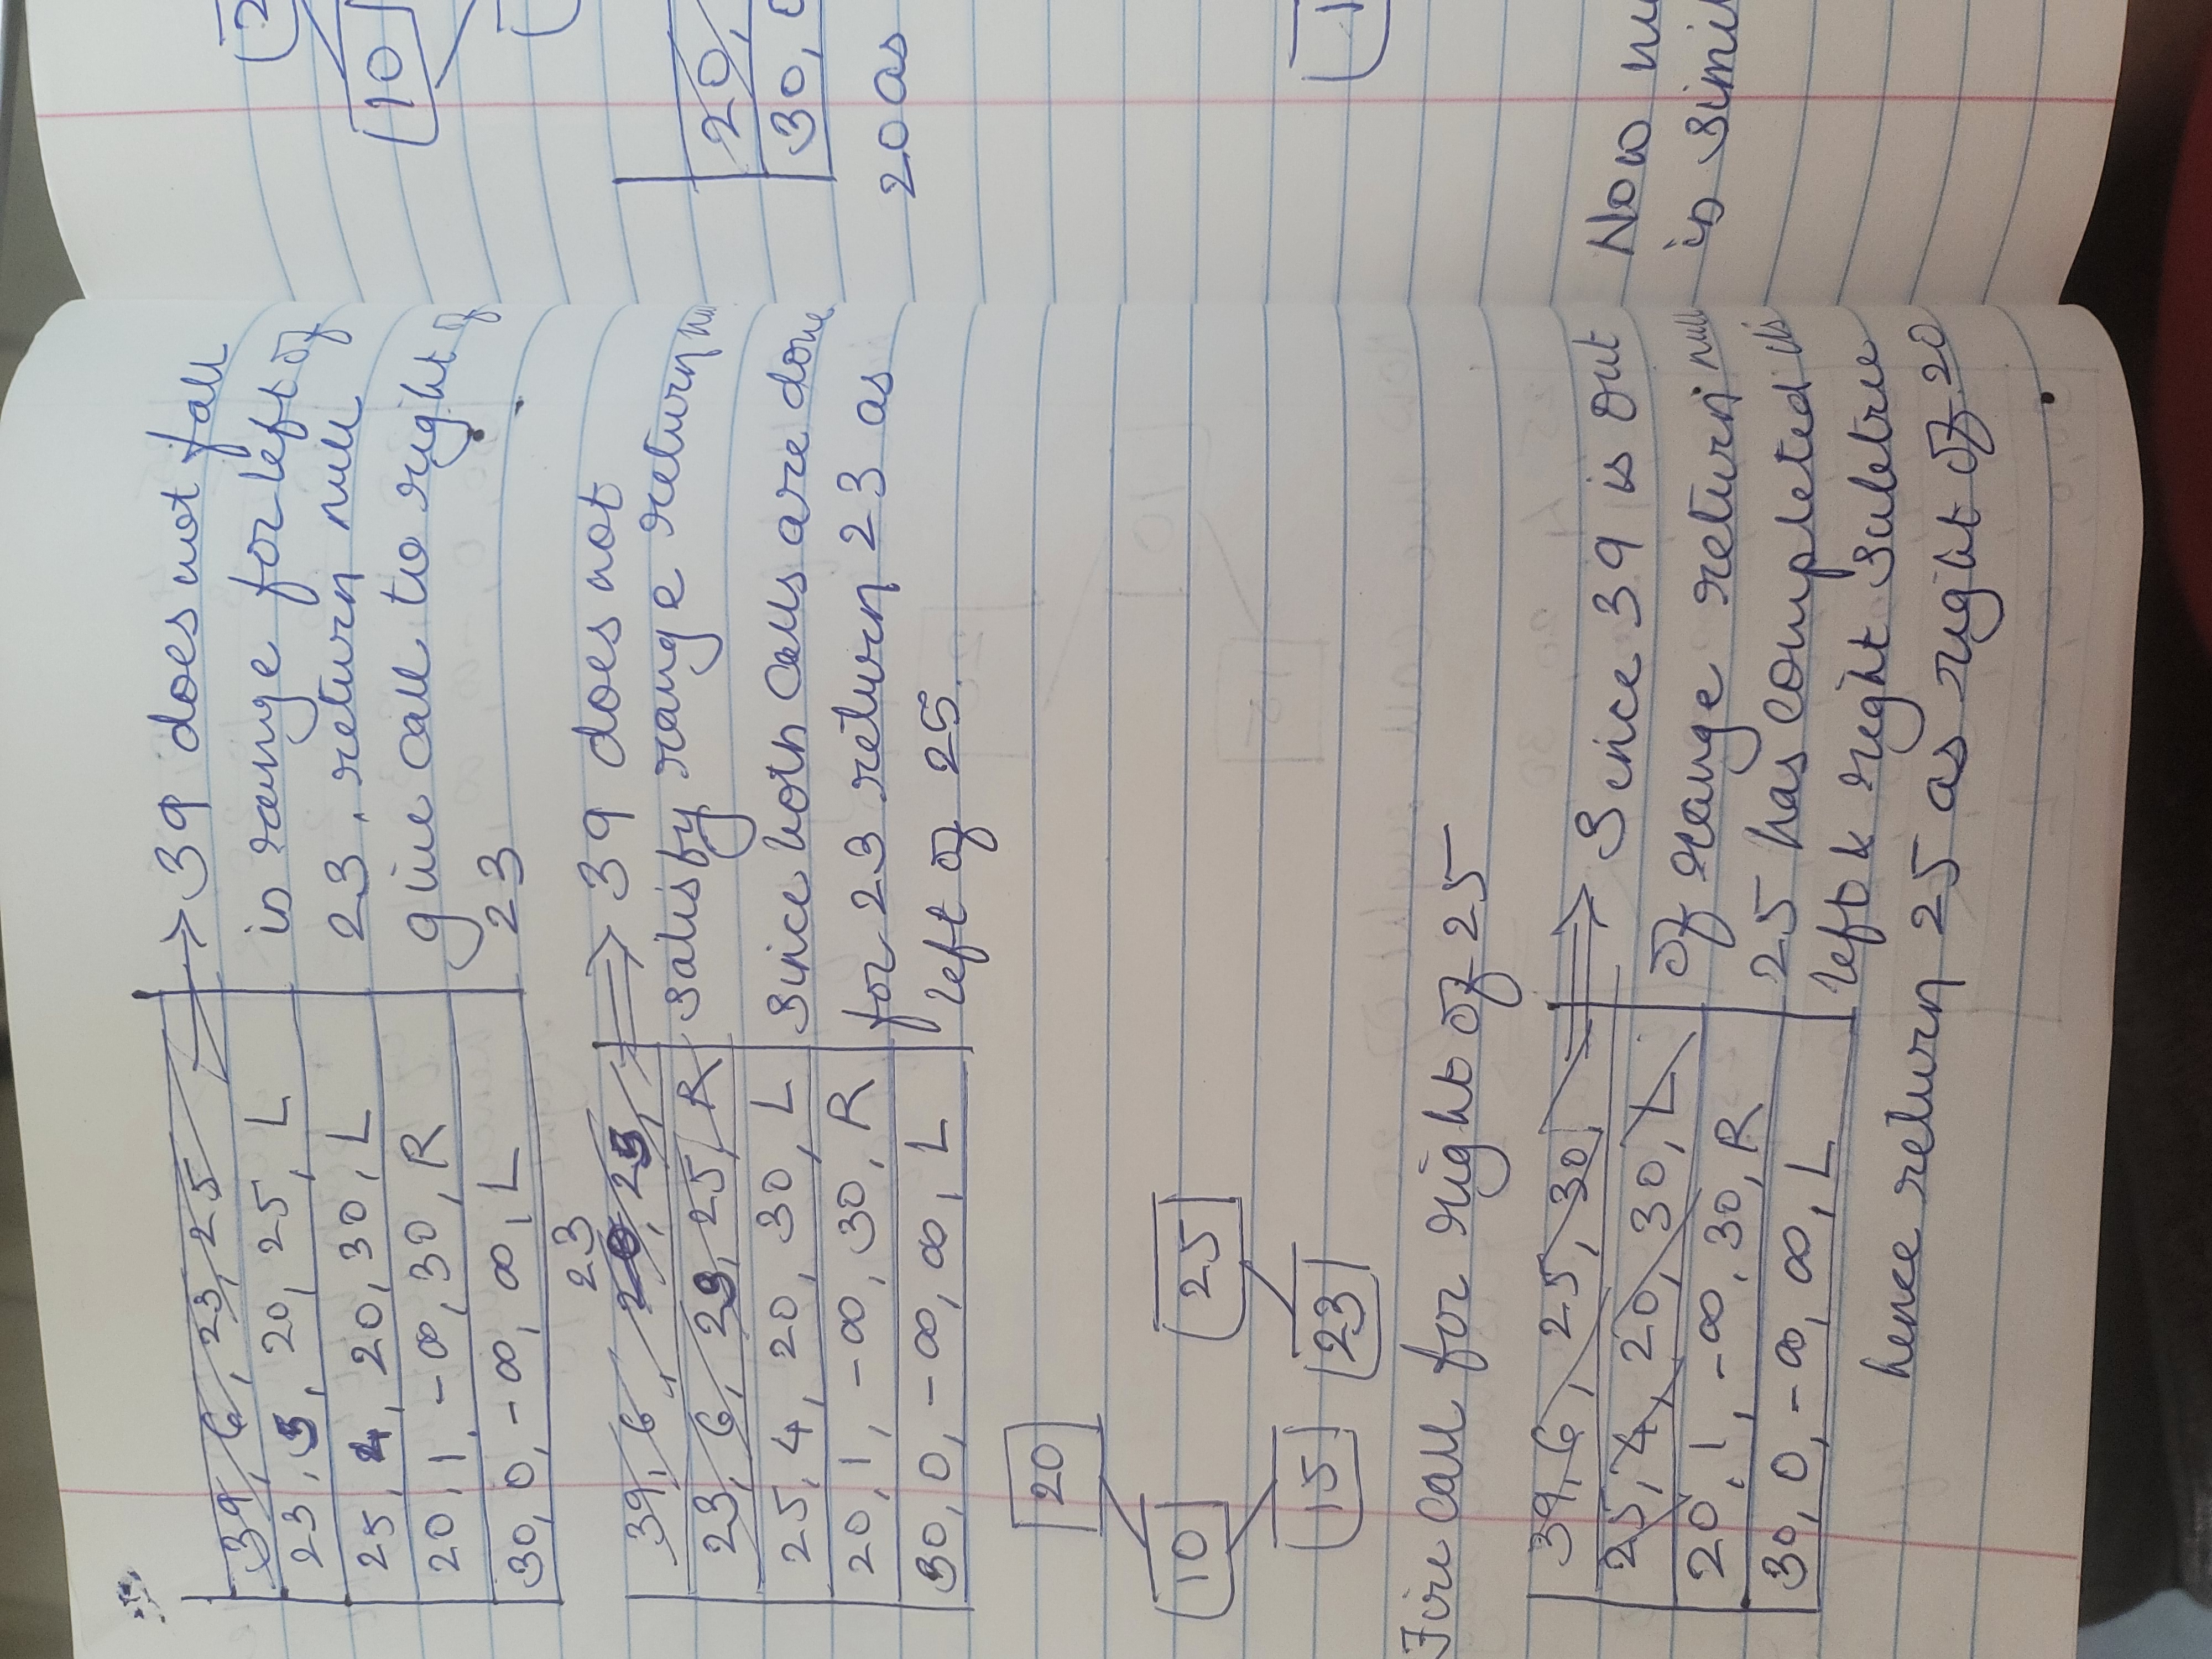 39, 6, 23, 25
23, 5, 20, 25, L
25, 4, 20, 30, L
20, 1, -∞, 30, R
30, 0, -∞, ∞, L
⟶ 39 does not fall
is range for left of
23, return null
give call to right of
23
23
39, 6, 20, 25,
23, 6, 23, 25, R
25, 4, 20, 30, L
20, 1, -∞, 30, R
30, 0, -∞, ∞, L
⟹ 39 does not
satisfy range return
Since both calls are done
for 23 return 23 as
left of 25.
20
10
25
15
23
Fire call for right of 25
39, 6, 25, 30,
25, 4, 20, 30, L
20, 1, -∞, 30, R
30, 0, -∞, ∞, L
⟹ Since 39 is out
of range return null
25 has completed its
left & right subtree
hence return 25 as right of 20
2
10
20,
30, 0
20 as
1
Now
is